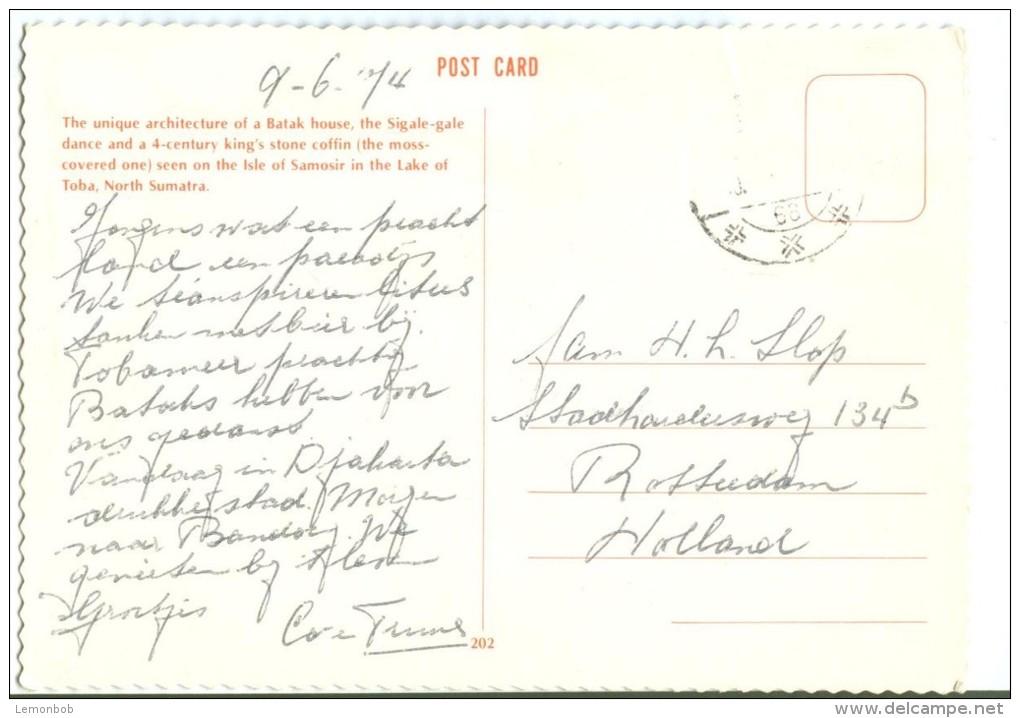 POST CARD
9-6-'74
The unique architecture of a Batak house, the Sigale-gale
dance and a 4-century king's stone coffin (the moss-
covered one) seen on the Isle of Samosir in the Lake of
Toba, North Sumatra.
Jongens wat een pracht
land een paradijs
We transpireren liters
tanken met bier bij.
Tobameer prachtig
Bataks hebben voor
ons gedanst
Vandaag in Djakarta
drukke stad. Morgen
naar Bandoeng. We
genieten bij
Groetjes
Co e Truus
202
Fam H. L. Slop
Stadhoudersweg 134b
Rotterdam
Holland
Lemonbob
delcampe.net